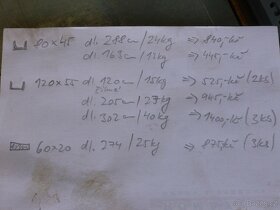 80x45 dl. 288cm/24kg => 840,-kč
dl. 163cm/11kg => 445,-kč
120x55 dl. 120cm/15kg => 525,-kč (2ks)
dl. 205cm/27kg => 945,-kč
dl. 302cm/40kg => 1400,-kč (3ks)
60x20 dl. 274/25kg => 875,-kč (3ks)